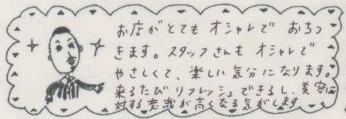 お店がとてもオシャレで おちつ
きます。スタッフさんも オシャレで
やさしくて、楽しい気分になります。
来るたび リフレッシュできるし、美容に
対する意識が高くなる気がします